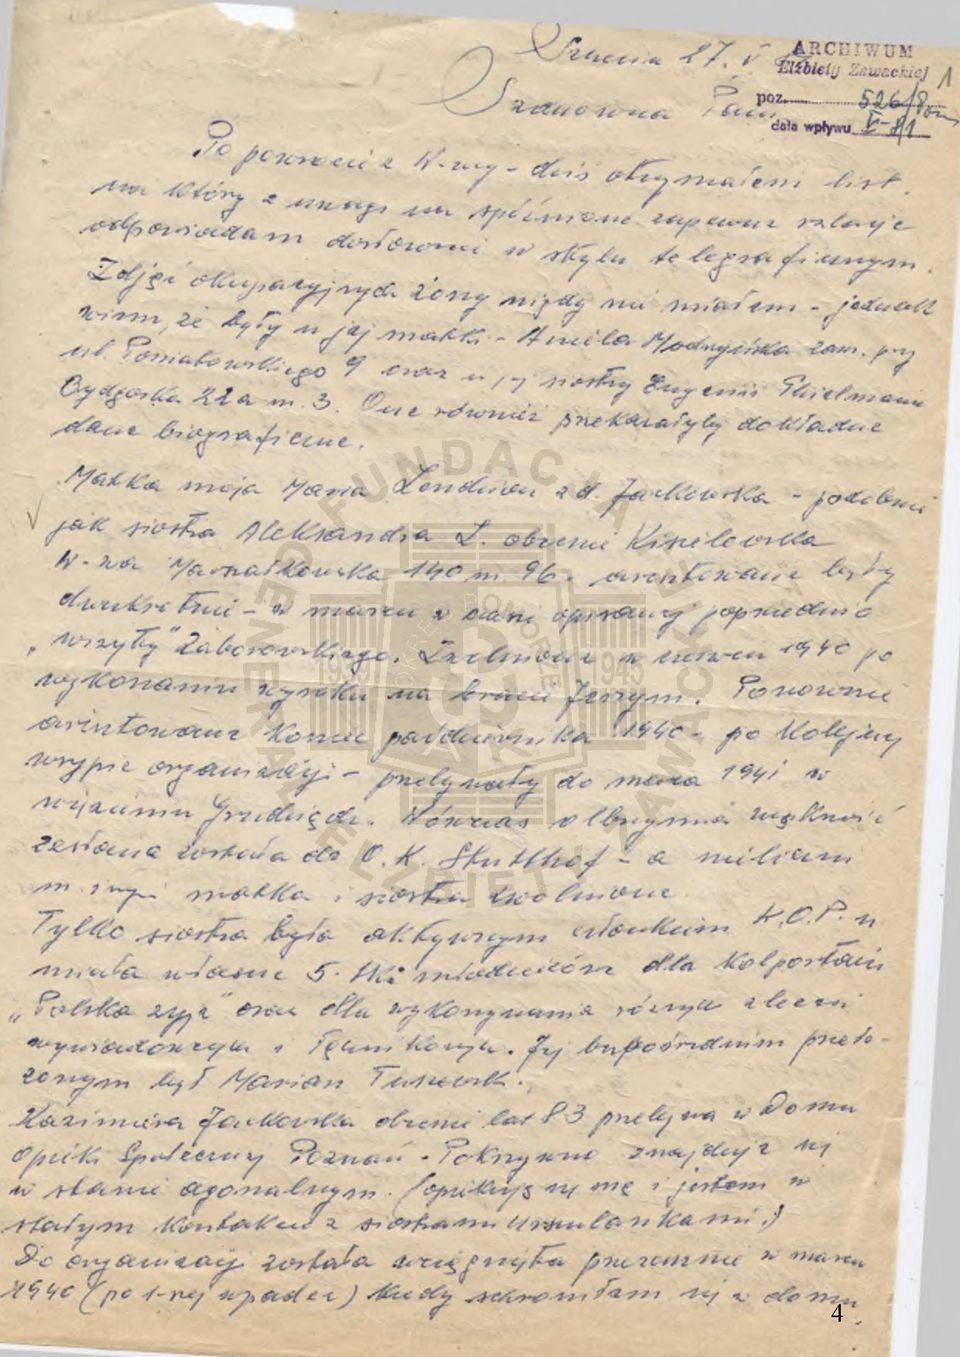 27. V
ARCHIWUM
Elżbiety Zawackiej
1
Szanowna Pani
poz. 526/Pom
data wpływu V-81
Po powrocie z W-wy - dziś otrzymałem list,
na który z uwagi na spóźnione zapewne relacje
odpowiadam dosłownie w stylu telegraficznym.
Zdjęć okupacyjnych żony nigdy nie miałem - jednak
wiem, że były u jej matki - Aniela Modrzyńska zam. przy
ul. Poniatowskiego 9 oraz u jej siostry Eugenii Thielmann
Bydgoska 22a m. 3. One również przekazałyby dokładne
dane biograficzne.
Matka moja Maria z d. Jackowska - podobnie
jak siostra Aleksandra L. obecnie Kisielewska
W-wa Marszałkowska 140 m. 96 - aresztowane były
dwukrotnie - w marcu w opisanej poprzednio
"wsypy" Zaborowskiego. Zwolnione w 1940 po
wykonaniu wyroku na bracie Jerzym. Ponownie
aresztowane koniec października 1940 - po kolejnej
wsypie organizacji - przebywały do marca 1941 w
więzieniu Grudziądz. Wówczas olbrzymia większość
zesłana została do O. K. Stutthof - a nieliczni
m. inni matka i siostra zwolnione.
Tylko siostra była aktywnym członkiem K.O.P. u
miała własne 5-tki młodzieżowe dla kolportażu
"Polska żyje" oraz dla wykonywania różnych zleceń
wywiadowczych i łącznikowych. Jej bezpośrednim przeło-
żonym był Marian
Kazimiera Jackowska obecnie lat 83 przebywa w Domu
Opieki Społecznej Poznań - Pokrzywno znajduje się
w stanie agonalnym. (opiekuję się nią i jestem w
stałym kontakcie z siostrami Urszulankami.)
Do organizacji została wciągnięta przeze mnie w marcu
1940 (po 1-szej wpadce) kiedy schroniłem się w domu
4
FUNDACJA GENERAŁ ELŻBIETY ZAWACKIEJ
1939 1945